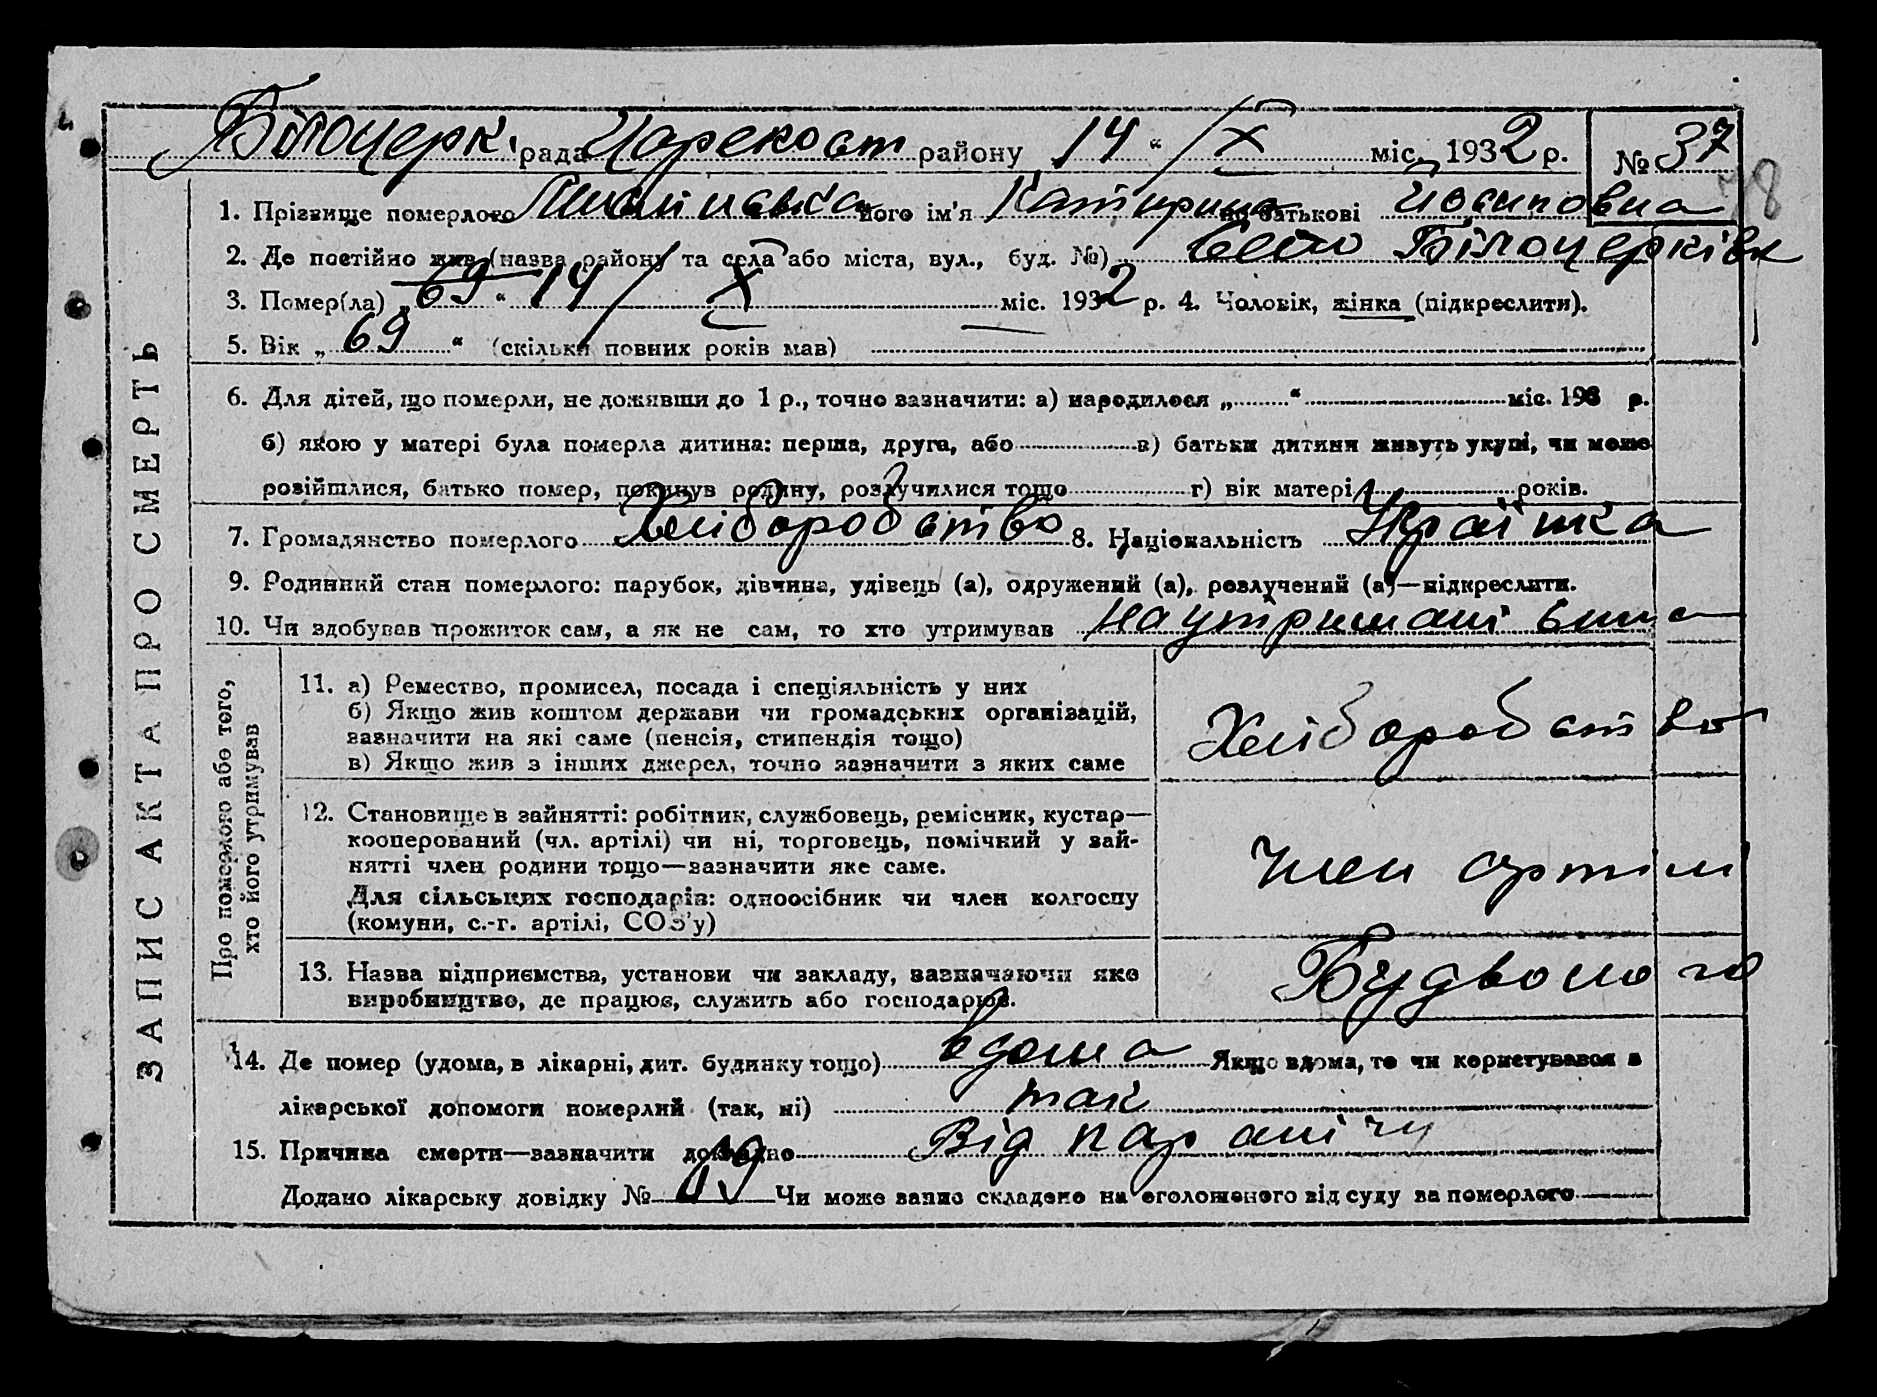 Білоцерк. рада району 14 “ / X міс. 1932 р. № 37
78
1. Прізвище померлого його ім'я Катирина по батькові Йосиповна
2. Де постійно жив (назва району та села або міста, вул., буд. №) Село Білоцерківк
3. Помер(ла) „ 69 “ 14 / X міс. 1932 р. 4. Чоловік, жінка (підкреслити).
5. Вік „ 69 “ (скільки повних років мав)
6. Для дітей, що померли, не доживши до 1 р., точно зазначити: а) народилося „ “ міс. 193 р.
б) якою у матері була померла дитина: перша, друга, або в) батьки дитини живуть укупі, чи може
розійшлися, батько помер, покинув родину, розлучилися тощо г) вік матері років.
7. Громадянство померлого Хліборобство 8. Національність Українка
9. Родинний стан померлого: парубок, дівчина, удівець (а), одружений (а), розлучений (а)—підкреслити.
10. Чи здобував прожиток сам, а як не сам, то хто утримував на утримані сина
ЗАПИС АКТА ПРО СМЕРТЬ
Про померлого або того,
хто його утримував
11. а) Ремество, промисел, посада і спеціяльність у них
б) Якщо жив коштом держави чи громадських організацій,
зазначити на які саме (пенсія, стипендія тощо)
в) Якщо жив з інших джерел, точно зазначити з яких саме
Хліборобство
12. Становище в зайнятті: робітник, службовець, ремісник, кустар—
кооперований (чл. артілі) чи ні, торговець, помічний у зай-
нятті член родини тощо—зазначити яке саме.
Для сільських господарів: одноосібник чи член колгоспу
(комуни, с.-г. артілі, СОЗ'у)
Член артіли
13. Назва підприємства, установи чи закладу, зазначаючи яке
виробництво, де працює, служить або господарює.
14. Де помер (удома, в лікарні, дит. будинку тощо) вдома Якщо вдома, то чи користувався з
лікарської допомоги померлий (так, ні) так
15. Причина смерти—зазначити докладно Від паралічу
Додано лікарську довідку № 19 Чи може запис складено на оголошеного від суду за померлого